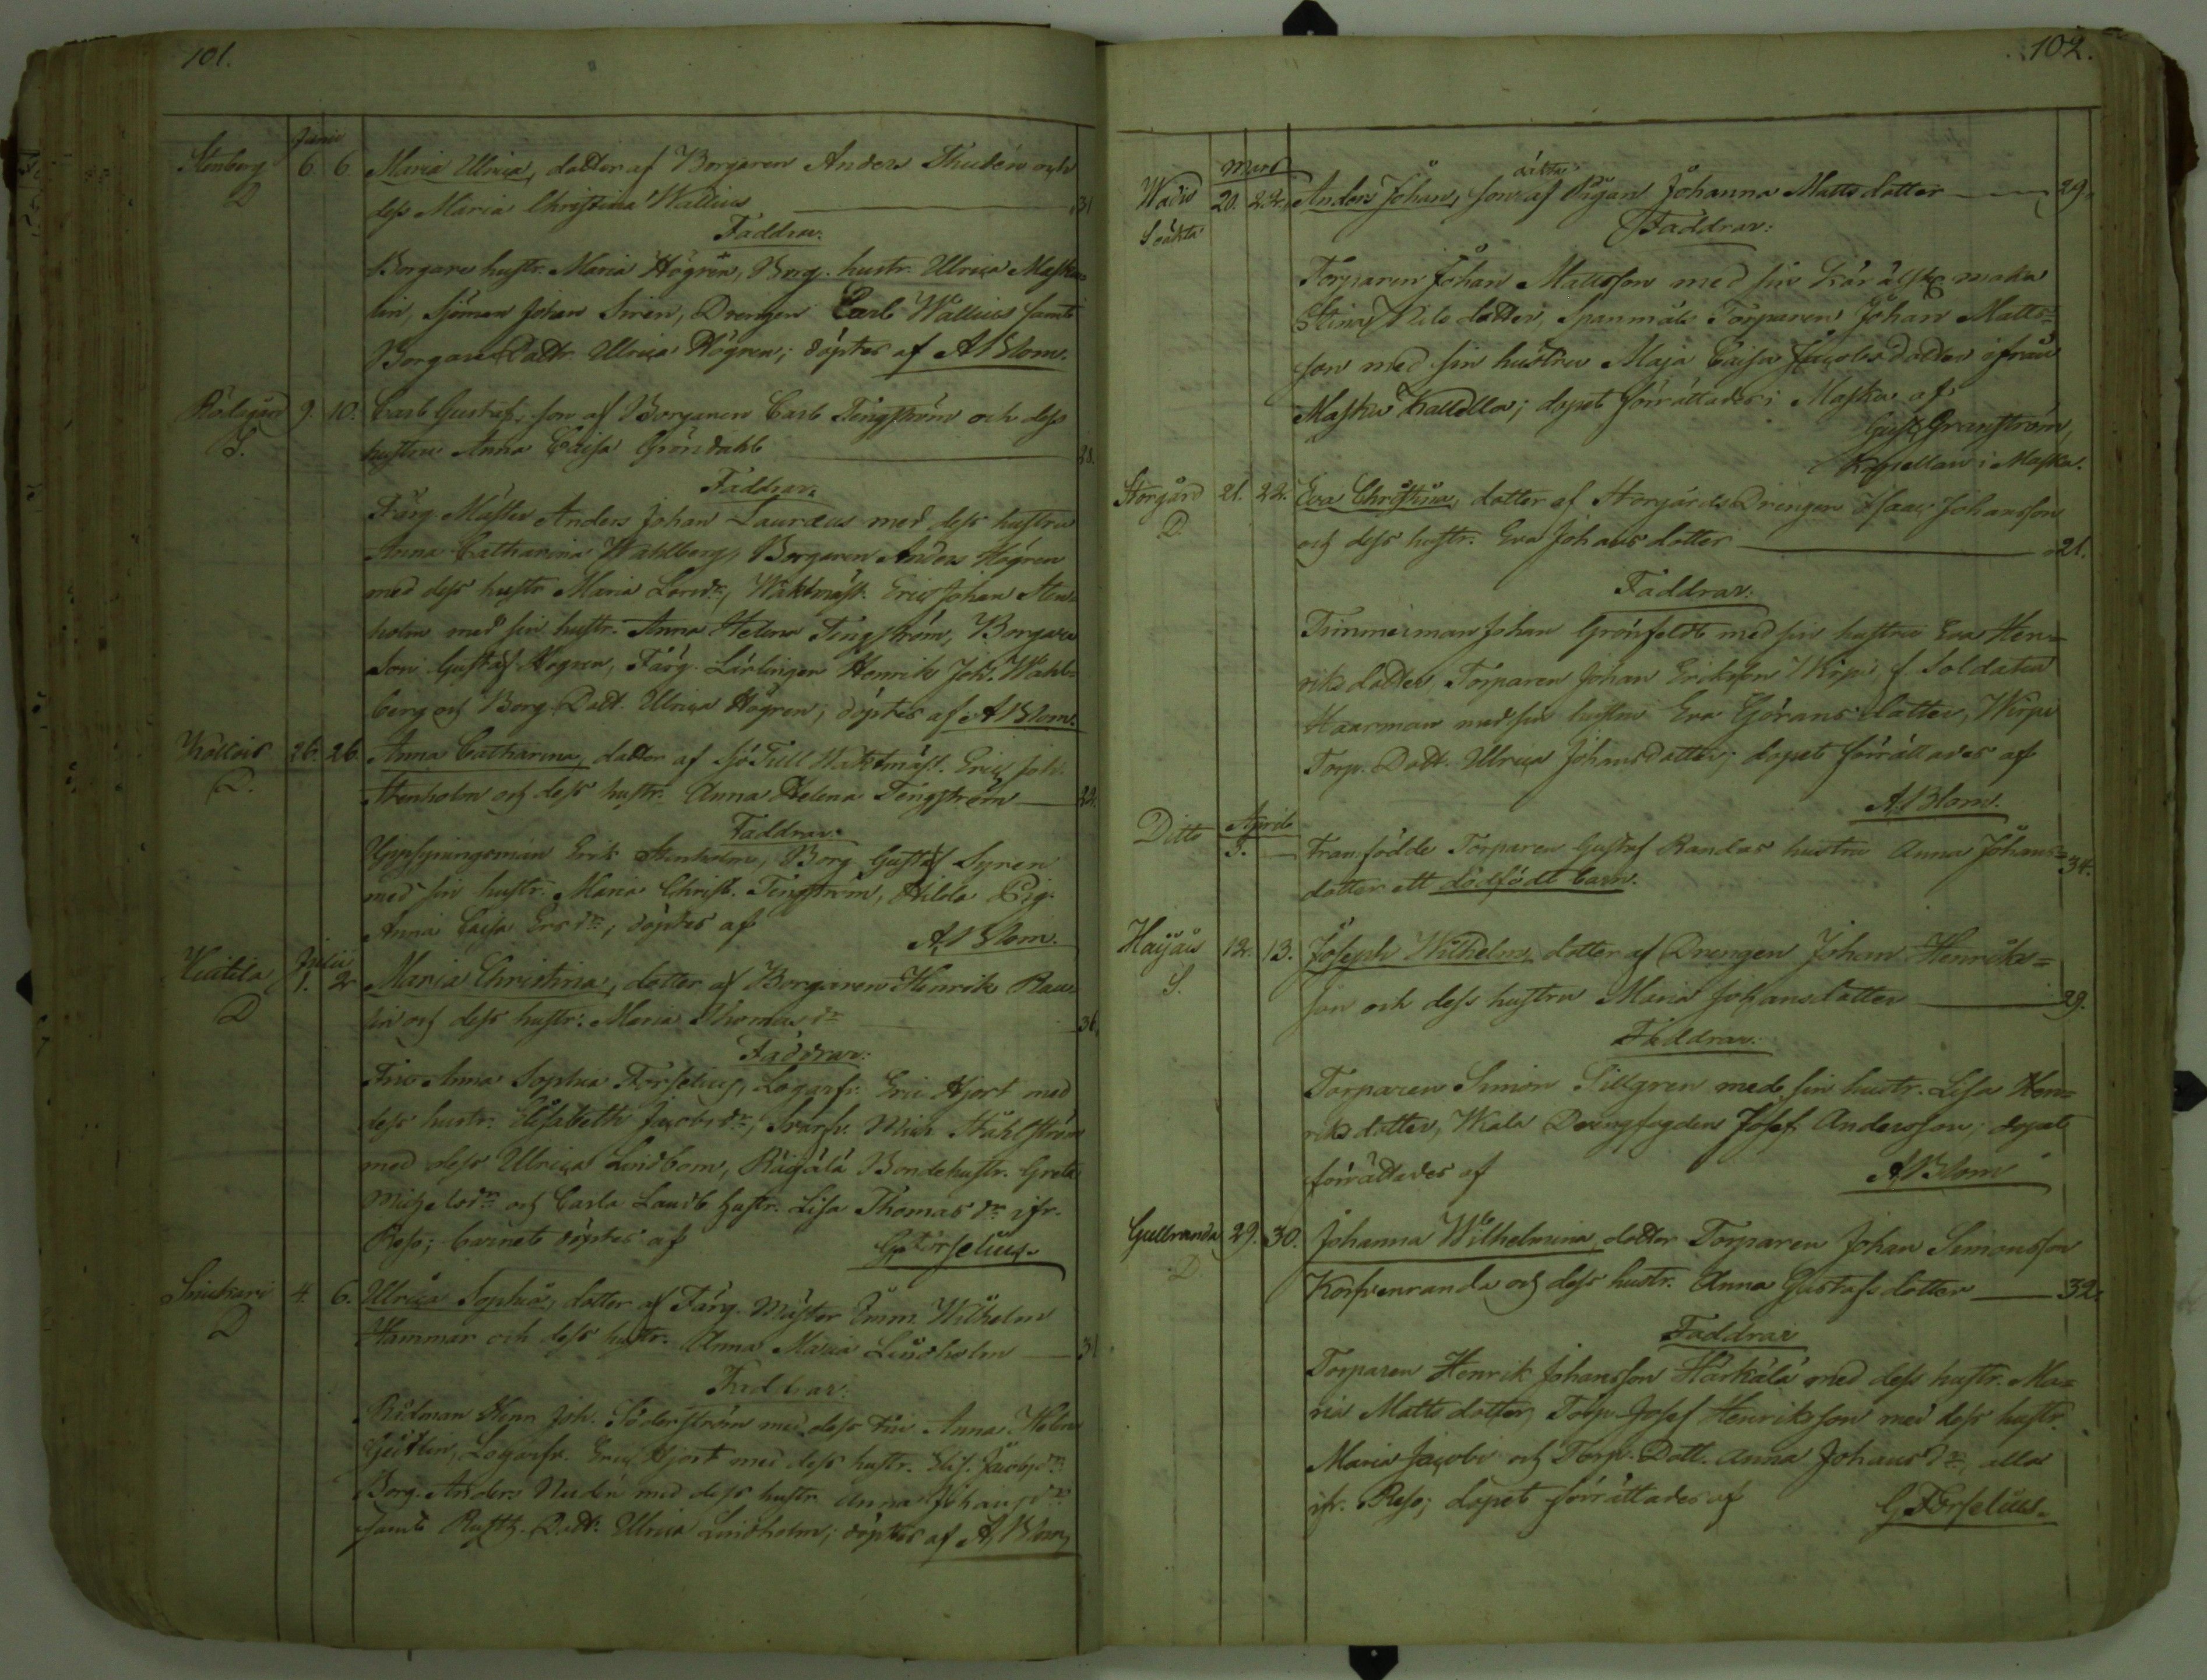 101.
Junii
Stenberg 6. 6. Maria Ulrica, dotter af Borgaren Anders Thudén och
D dess Maria Christina Wallius 31
Faddrar:
Borgare hustr. Maria Högrén, Borg. hustr. Ulrica Maske-
lin, Sjöman Johan Sirén, Drengen Carl Wallius samt
Borgare Dottr. Ulrica Högren; döptes af A Blom.
9. 10. Carl Gustaf, son af Borgaren Carl Tengström och dess
S. hustru Anna Caisa Gröndahl 28.
Faddrar:
Färg. Mäster Anders Johan Lauraeus med dess hustru
Anna Catharina Wahlberg, Borgaren Anders Högren
med dess hustr. Maria Waktmäst. Eric Johan Sten-
holm med sin hustr. Anna Helena Tengström, Borgare
Son Gustaf Högren, Färg. Lärlingen Henrik Joh. Wahl-
berg och Borg. Dott. Ulrica Högren; döptes af A Blom.
26. 26. Anna Catharina, dotter af Sjö Tull Waktmäst. Eric Joh.
D. Stenholm och dess hustr. Anna Helena Tengström 22.
Faddrar:
Uppsyningsman Erik Stenholm, Borg. Gustaf Syren
med sin hustr. Maria Christ. Tengström, Pig.
Anna Caisa Ersdr; döptes af A. Blom.
Julii
1. 2 Maria Christina, dotter af Borgaren Henrik
D och dess hustr. Maria Thomasdr 36
Faddrar:
Fru Anna Sophia Forselius, Logarf. Eric Hjort med
dess hustr. Elisabeth Jacobsdr, Mich Ståhlström
med dess Ulrica Lindbom, Bondehustr. Greta
Michelsdr och Carla Landb. hustr. Lisa Thomasdr ifr.
Reso; barnet döptes af G. Forselius.
4. 6. Ulrica Sophia, dotter af Färg. Mäster Emm. Wilhelm
D Hammar och dess hustr. Anna Maria Lindholm 31
Faddrar:
Rådman Henr. Joh. Söderström med dess Fru Anna Helena
Logarfv. Eric Hjort med dess hustr. Elis. Jacobsdr
Borg. Anders med dess hustr. Anna Johansdr
samt Dott. Ulrica Lindholm; döptes af A, Blom,
102.
Mars
20. 22. Anders Johan, son af Pigan Johanna Matts dotter 29.
Faddrar:
Torparen Johan Mattsson med sin kära maka
Stina Nils dotter, Spanmåls Torparen Johan Matts-
son med sin hustru Maja Caisa Jacobsdotter ifrån
Masku dopet förrättades i Masku af
Gust. Granström,
Kapellan i Masku.
Storgård 21. 22. Eva Christina, dotter af Storgårds Drengen Isaac Johansson
D. och dess hustr. Eva Johans dotter 21.
Faddrar:
Timmerman Johan Grönfeldt med sin hustru Eva Hen-
riks dotter, Torparen Johan Eriksson f. Soldaten
Haarman med sin hustru Eva Görans dotter,
Torp. Dott. Ulrica Johansdotter; dopet förrättades af
A. Blom.
Ditto April
3. — Framfödde Torparen Gustaf Randas hustru Anna Johans- 34.
dotter ett dödfödt barn.
12. 13. Joseph Wilhelm, dotter af Drengen Johan Henriks-
S. son och dess hustru Maria Johansdotter 29.
Faddrar:
Torparen Simon Sillgren med sin hustr. Lisa Hen-
riks dotter, Drengfogden Josef Andersson; dopet
förrättades af A Blom
Gullranda 29. 30. Johanna Wilhelmina, dotter Torparen Johan Simonsson
D Korpenranda och dess hustr. Anna Gustafs dotter 32.
Faddrar
Torparen Henrik Johansson Härkälä med dess hustr. Ma-
ria Matts dotter, Torp. Josef Henriksson med dess hustr.
Maria Jacobs och Torp. Dott. Anna Johansdr, alla
ifr. Reso; dopet förrättades af G. Forselius.